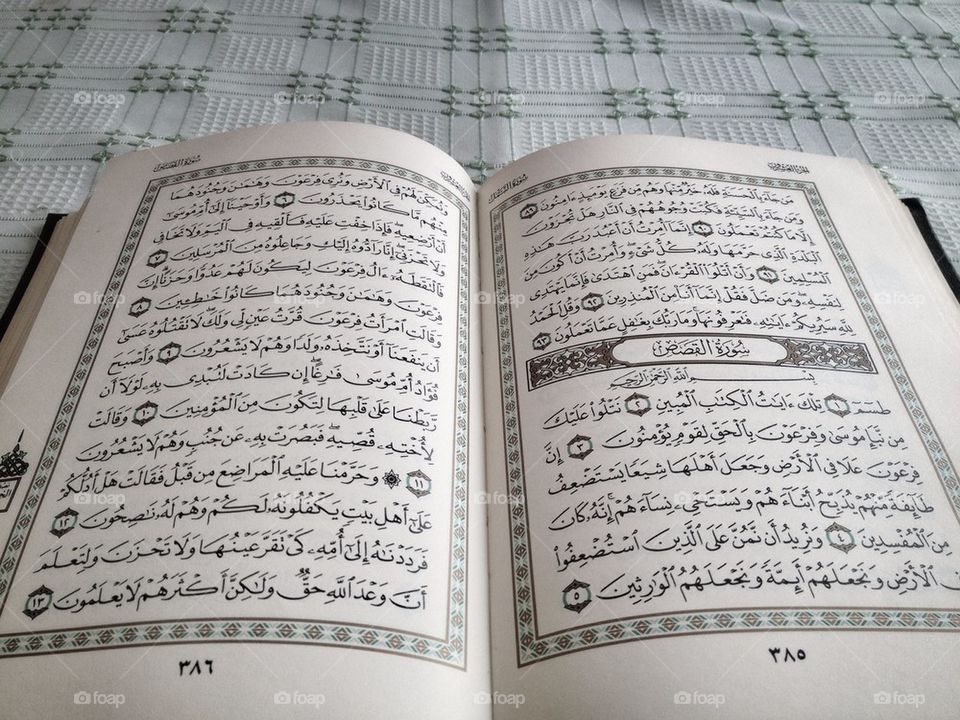 الجزء العشرون
سورة النمل
مَن جَآءَ بِٱلْحَسَنَةِ فَلَهُۥ خَيْرٌ مِّنْهَا وَهُم مِّن فَزَعٍ يَوْمَئِذٍ ءَامِنُونَ ٨٩
وَمَن جَآءَ بِٱلسَّيِّئَةِ فَكُبَّتْ وُجُوهُهُمْ فِى ٱلنَّارِ هَلْ تُجْزَوْنَ
إِلَّا مَا كُنتُمْ تَعْمَلُونَ ٩٠ إِنَّمَآ أُمِرْتُ أَنْ أَعْبُدَ رَبَّ هَٰذِهِ
ٱلْبَلْدَةِ ٱلَّذِى حَرَّمَهَا وَلَهُۥ كُلُّ شَىْءٍ ۖ وَأُمِرْتُ أَنْ أَكُونَ مِنَ
ٱلْمُسْلِمِينَ ٩١ وَأَنْ أَتْلُوَا۟ ٱلْقُرْءَانَ ۖ فَمَنِ ٱهْتَدَىٰ فَإِنَّمَا يَهْتَدِى
لِنَفْسِهِۦ ۖ وَمَن ضَلَّ فَقُلْ إِنَّمَآ أَنَا۠ مِنَ ٱلْمُنذِرِينَ ٩٢ وَقُلِ ٱلْحَمْدُ
لِلَّهِ سَيُرِيكُمْ ءَايَٰتِهِۦ فَتَعْرِفُونَهَا ۚ وَمَا رَبُّكَ بِغَٰفِلٍ عَمَّا تَعْمَلُونَ ٩٣
سُورَةُ القَصَصِ
بِسْمِ ٱللَّهِ ٱلرَّحْمَٰنِ ٱلرَّحِيمِ
طسٓمٓ ١ تِلْكَ ءَايَٰتُ ٱلْكِتَٰبِ ٱلْمُبِينِ ٢ نَتْلُوا۟ عَلَيْكَ
مِن نَّبَإِ مُوسَىٰ وَفِرْعَوْنَ بِٱلْحَقِّ لِقَوْمٍ يُؤْمِنُونَ ٣ إِنَّ
فِرْعَوْنَ عَلَا فِى ٱلْأَرْضِ وَجَعَلَ أَهْلَهَا شِيَعًا يَسْتَضْعِفُ
طَآئِفَةً مِّنْهُمْ يُذَبِّحُ أَبْنَآءَهُمْ وَيَسْتَحْىِۦ نِسَآءَهُمْ ۚ إِنَّهُۥ كَانَ
مِنَ ٱلْمُفْسِدِينَ ٤ وَنُرِيدُ أَن نَّمُنَّ عَلَى ٱلَّذِينَ ٱسْتُضْعِفُوا۟
ٱلْأَرْضِ وَنَجْعَلَهُمْ أَئِمَّةً وَنَجْعَلَهُمُ ٱلْوَٰرِثِينَ ٥
٣٨٥
الجزء العشرون
سورة القصص
وَنُمَكِّنَ لَهُمْ فِى ٱلْأَرْضِ وَنُرِىَ فِرْعَوْنَ وَهَٰمَٰنَ وَجُنُودَهُمَا
مِنْهُم مَّا كَانُوا۟ يَحْذَرُونَ ٦ وَأَوْحَيْنَآ إِلَىٰٓ أُمِّ مُوسَىٰٓ
أَنْ أَرْضِعِيهِ ۖ فَإِذَا خِفْتِ عَلَيْهِ فَأَلْقِيهِ فِى ٱلْيَمِّ وَلَا تَخَافِى
وَلَا تَحْزَنِىٓ ۖ إِنَّا رَآدُّوهُ إِلَيْكِ وَجَاعِلُوهُ مِنَ ٱلْمُرْسَلِينَ ٧
فَٱلْتَقَطَهُۥٓ ءَالُ فِرْعَوْنَ لِيَكُونَ لَهُمْ عَدُوًّا وَحَزَنًا ۗ إِنَّ
فِرْعَوْنَ وَهَٰمَٰنَ وَجُنُودَهُمَا كَانُوا۟ خَٰطِـِٔينَ ٨
وَقَالَتِ ٱمْرَأَتُ فِرْعَوْنَ قُرَّتُ عَيْنٍ لِّى وَلَكَ ۖ لَا تَقْتُلُوهُ عَسَىٰٓ
أَن يَنفَعَنَآ أَوْ نَتَّخِذَهُۥ وَلَدًا وَهُمْ لَا يَشْعُرُونَ ٩ وَأَصْبَحَ
فُؤَادُ أُمِّ مُوسَىٰ فَٰرِغًا ۖ إِن كَادَتْ لَتُبْدِى بِهِۦ لَوْلَآ أَن
رَّبَطْنَا عَلَىٰ قَلْبِهَا لِتَكُونَ مِنَ ٱلْمُؤْمِنِينَ ١٠ وَقَالَتْ
لِأُخْتِهِۦ قُصِّيهِ ۖ فَبَصُرَتْ بِهِۦ عَن جُنُبٍ وَهُمْ لَا يَشْعُرُونَ
١١ ۞ وَحَرَّمْنَا عَلَيْهِ ٱلْمَرَاضِعَ مِن قَبْلُ فَقَالَتْ هَلْ أَدُلُّكُمْ
عَلَىٰٓ أَهْلِ بَيْتٍ يَكْفُلُونَهُۥ لَكُمْ وَهُمْ لَهُۥ نَٰصِحُونَ ١٢
فَرَدَدْنَٰهُ إِلَىٰٓ أُمِّهِۦ كَىْ تَقَرَّ عَيْنُهَا وَلَا تَحْزَنَ وَلِتَعْلَمَ
أَنَّ وَعْدَ ٱللَّهِ حَقٌّ وَلَٰكِنَّ أَكْثَرَهُمْ لَا يَعْلَمُونَ ١٣
٣٨٦
foap